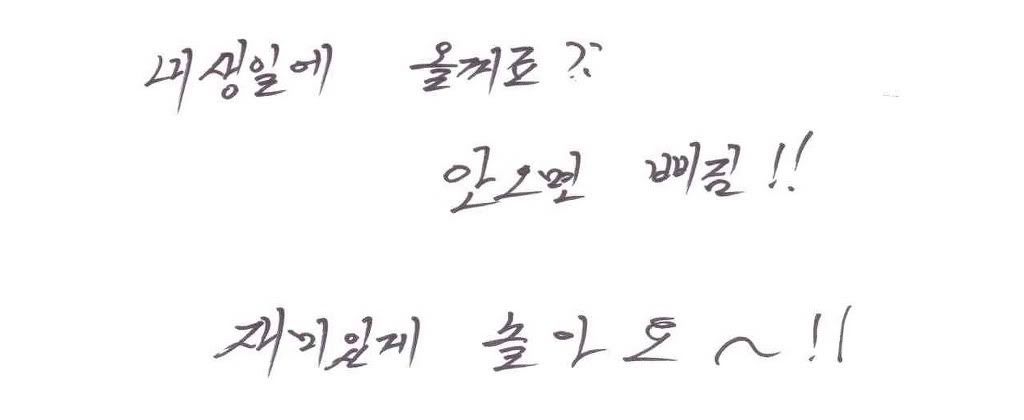 내생일에 올꺼죠??
안오면 삐짐!!
재미있게 놀아요~!!